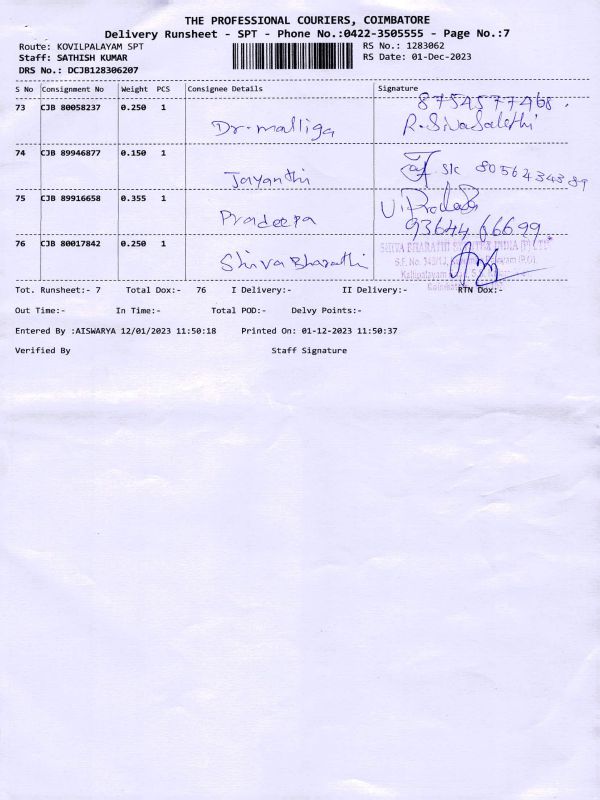 THE PROFESSIONAL COURIERS, COIMBATORE
Delivery Runsheet - SPT - Phone No.:0422-3505555 - Page No.:7
Route: KOVILPALAYAM SPT RS No.: 1283062
Staff: SATHISH KUMAR RS Date: 01-Dec-2023
DRS No.: DCJB128306207
S No Consignment No Weight PCS Consignee Details Signature
73 CJB 80058237 0.250 1 8754577468.
Dr. malliga R. Sivasakthi
74 CJB 89946877 0.150 1
Jayanthi 8056434389
75 CJB 89916658 0.355 1
Pradeepa 9364466699
76 CJB 80017842 0.250 1 SHIVA BHARATHI INDIA (P) LTD
Shiva Bharathi S.F. No.
Kallipalayam
Tot. Runsheet:- 7 Total Dox:- 76 I Delivery:- II Delivery:- RTN Dox:-
Out Time:- In Time:- Total POD:- Delvy Points:-
Entered By :AISWARYA 12/01/2023 11:50:18 Printed On: 01-12-2023 11:50:37
Verified By Staff Signature